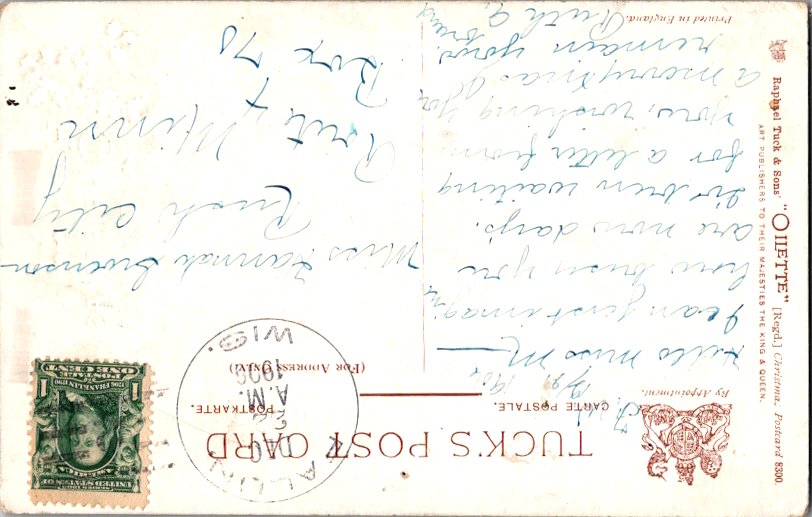 TUCK'S POST CARD
CARTE POSTALE.
POSTKARTE.
(FOR ADDRESS ONLY.)
By Appointment.
Raphael Tuck & Sons' "OILETTE" [Regd.] Christmas Postcard 8300.
ART PUBLISHERS TO THEIR MAJESTIES THE KING & QUEEN.
Printed in England.
WIS.
1906
A.M.
DEC
SERIES 1902
UNITED STATES OF
AMERICA
1706 FRANKLIN 1790
POSTAGE
1 ONE CENT 1
Hello Miss
I can just imagine
how busy you
are now days.
I've been waiting
for a letter from
you, wishing you
a merry Xmas
remain your
Ruth
Miss Hannah Swenson
Rush City
Minn
Route
Box 70